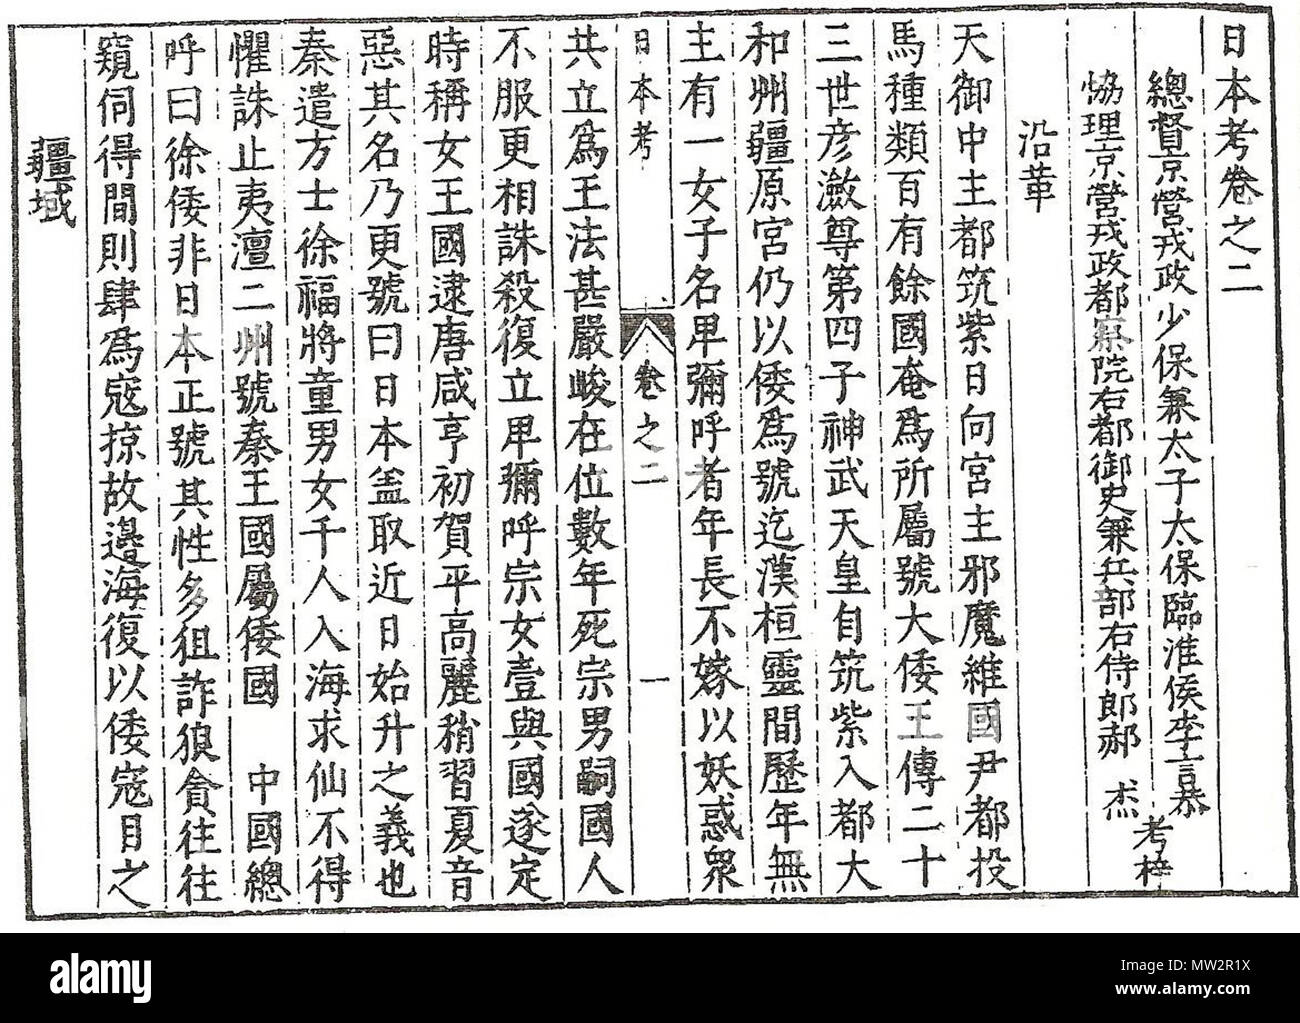 日本考卷之二
總督京營戎政少保兼太子太保臨淮侯李言恭
協理京營戎政都察院右都御史兼兵部右侍郎郝 杰
考梓
沿革
天御中主都筑紫日向宮主邪魔維國尹都投
馬種類百有餘國奄爲所屬號大倭王傳二十
三世彦瀲尊第四子神武天皇自筑紫入都大
和州疆原宮仍以倭爲號迄漢桓靈間歷年無
主有一女子名卑彌呼者年長不嫁以妖惑眾
日本考 卷之二 一
共立爲王法甚嚴峻在位數年死宗男嗣國人
不服更相誅殺復立卑彌呼宗女壹與國遂定
時稱女王國逮唐咸亨初賀平高麗稍習夏音
惡其名乃更號曰日本盖取近日始升之義也
秦遣方士徐福將童男女千人入海求仙不得
懼誅止夷澶二州號秦王國屬倭國 中國總
呼曰徐倭非日本正號其性多狙詐狼貪往往
窺伺得間則肆爲寇掠故邊海復以倭寇目之
疆域
alamy
Image ID: MW2R1X
www.alamy.com